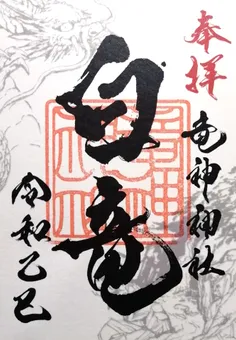 奉拝
竜神神社
白竜
令和乙巳